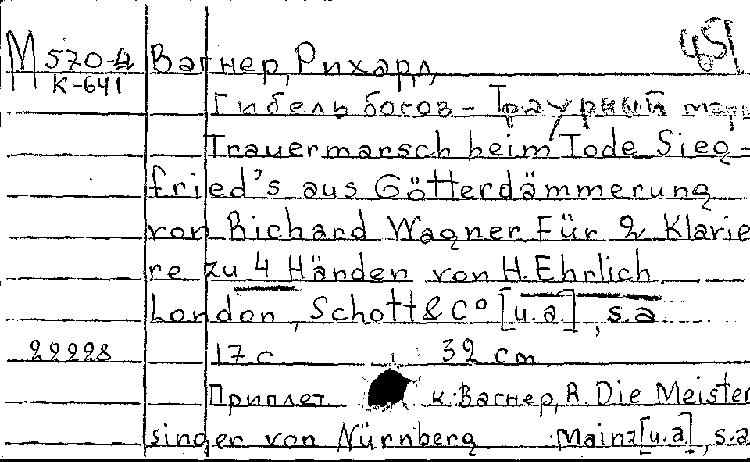 М 570-4 Вагнер, Рихард, 451
К-641
Гибель богов – Траурный марш
Trauermarsch beim Tode Sieg-
fried's aus Götterdämmerung
von Richard Wagner Für 2 Klavie
re zu 4 Händen von H. Ehrlich.
London, Schott & Cº [u.a], s.a
22228 17 с. 32 cm
Приплет к: Вагнер, R. Die Meister
singer von Nürnberg Mainz [u.a], s.a